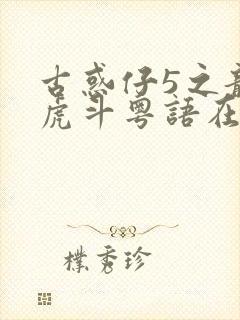 古惑仔5之龍
虎斗粵語在
樸秀珍